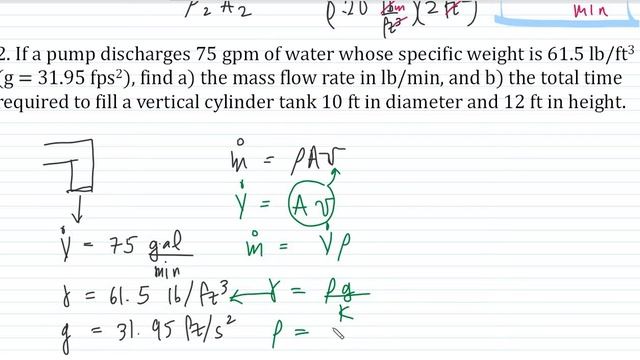 ρ₂ A₂ ρ·20 lbm/ft³ (2 ft min
2. If a pump discharges 75 gpm of water whose specific weight is 61.5 lb/ft³
(g = 31.95 fps²), find a) the mass flow rate in lb/min, and b) the total time
required to fill a vertical cylinder tank 10 ft in diameter and 12 ft in height.
ṁ = ρAv
V̇ = Av
V̇ = 75 gal/min ṁ = V̇ρ
γ = 61.5 lb/ft³ ← γ = ρg/k
g = 31.95 ft/s² ρ =